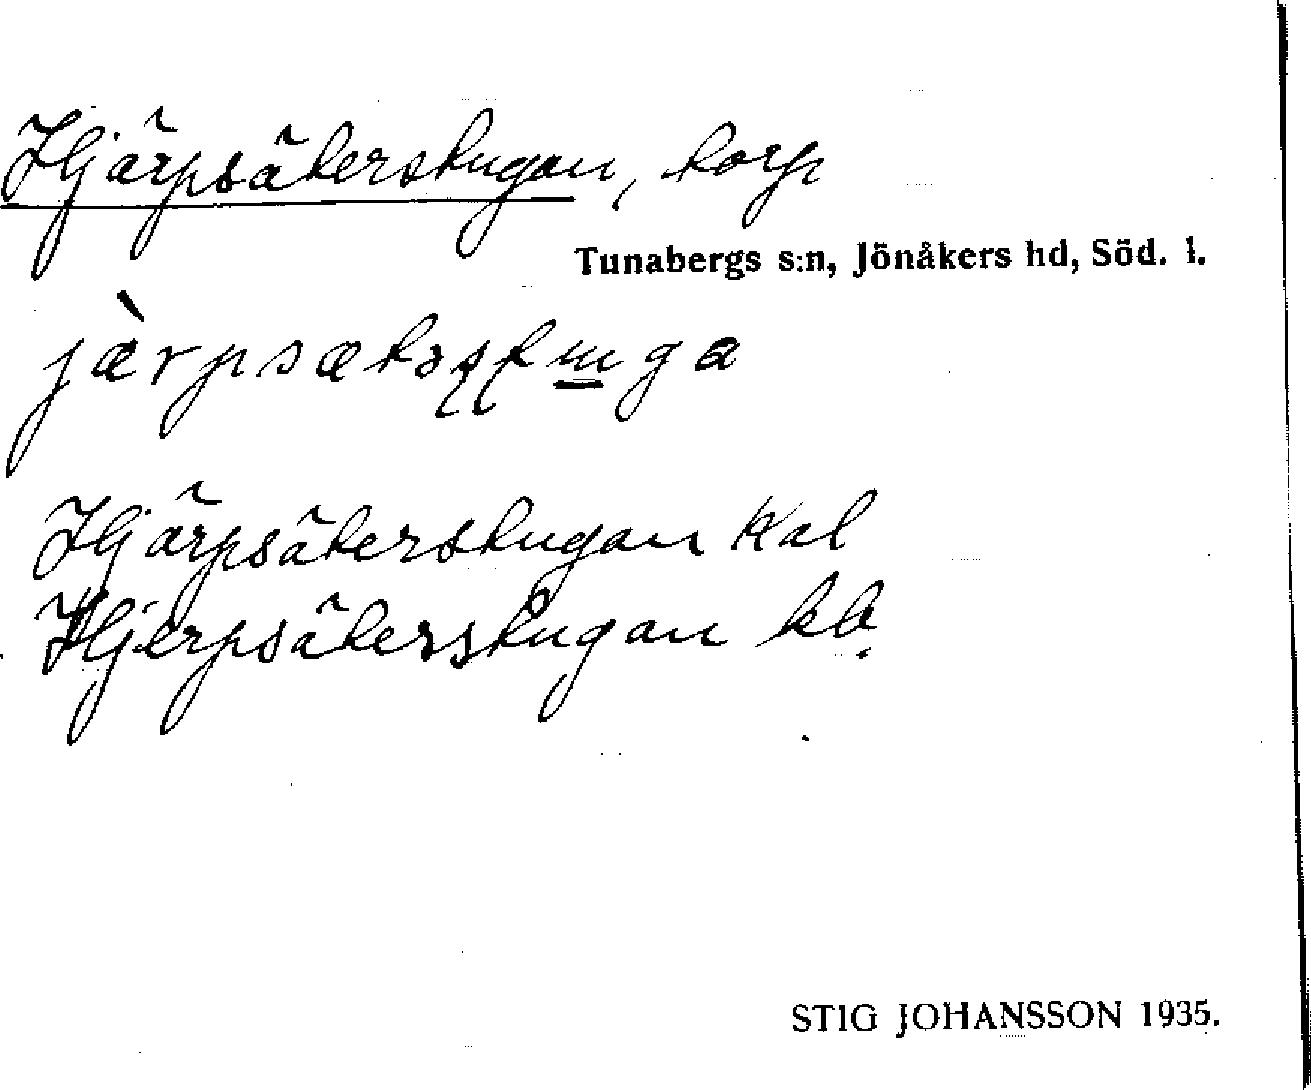 Hjärpsäterstugan, torp
Tunabergs s:n, Jönåkers hd, Söd. l.
jæ̀rpsætəʂʈɯga
Hjärpsäterstugan Kal
Hjerpsätersstugan kb.
STIG JOHANSSON 1935.